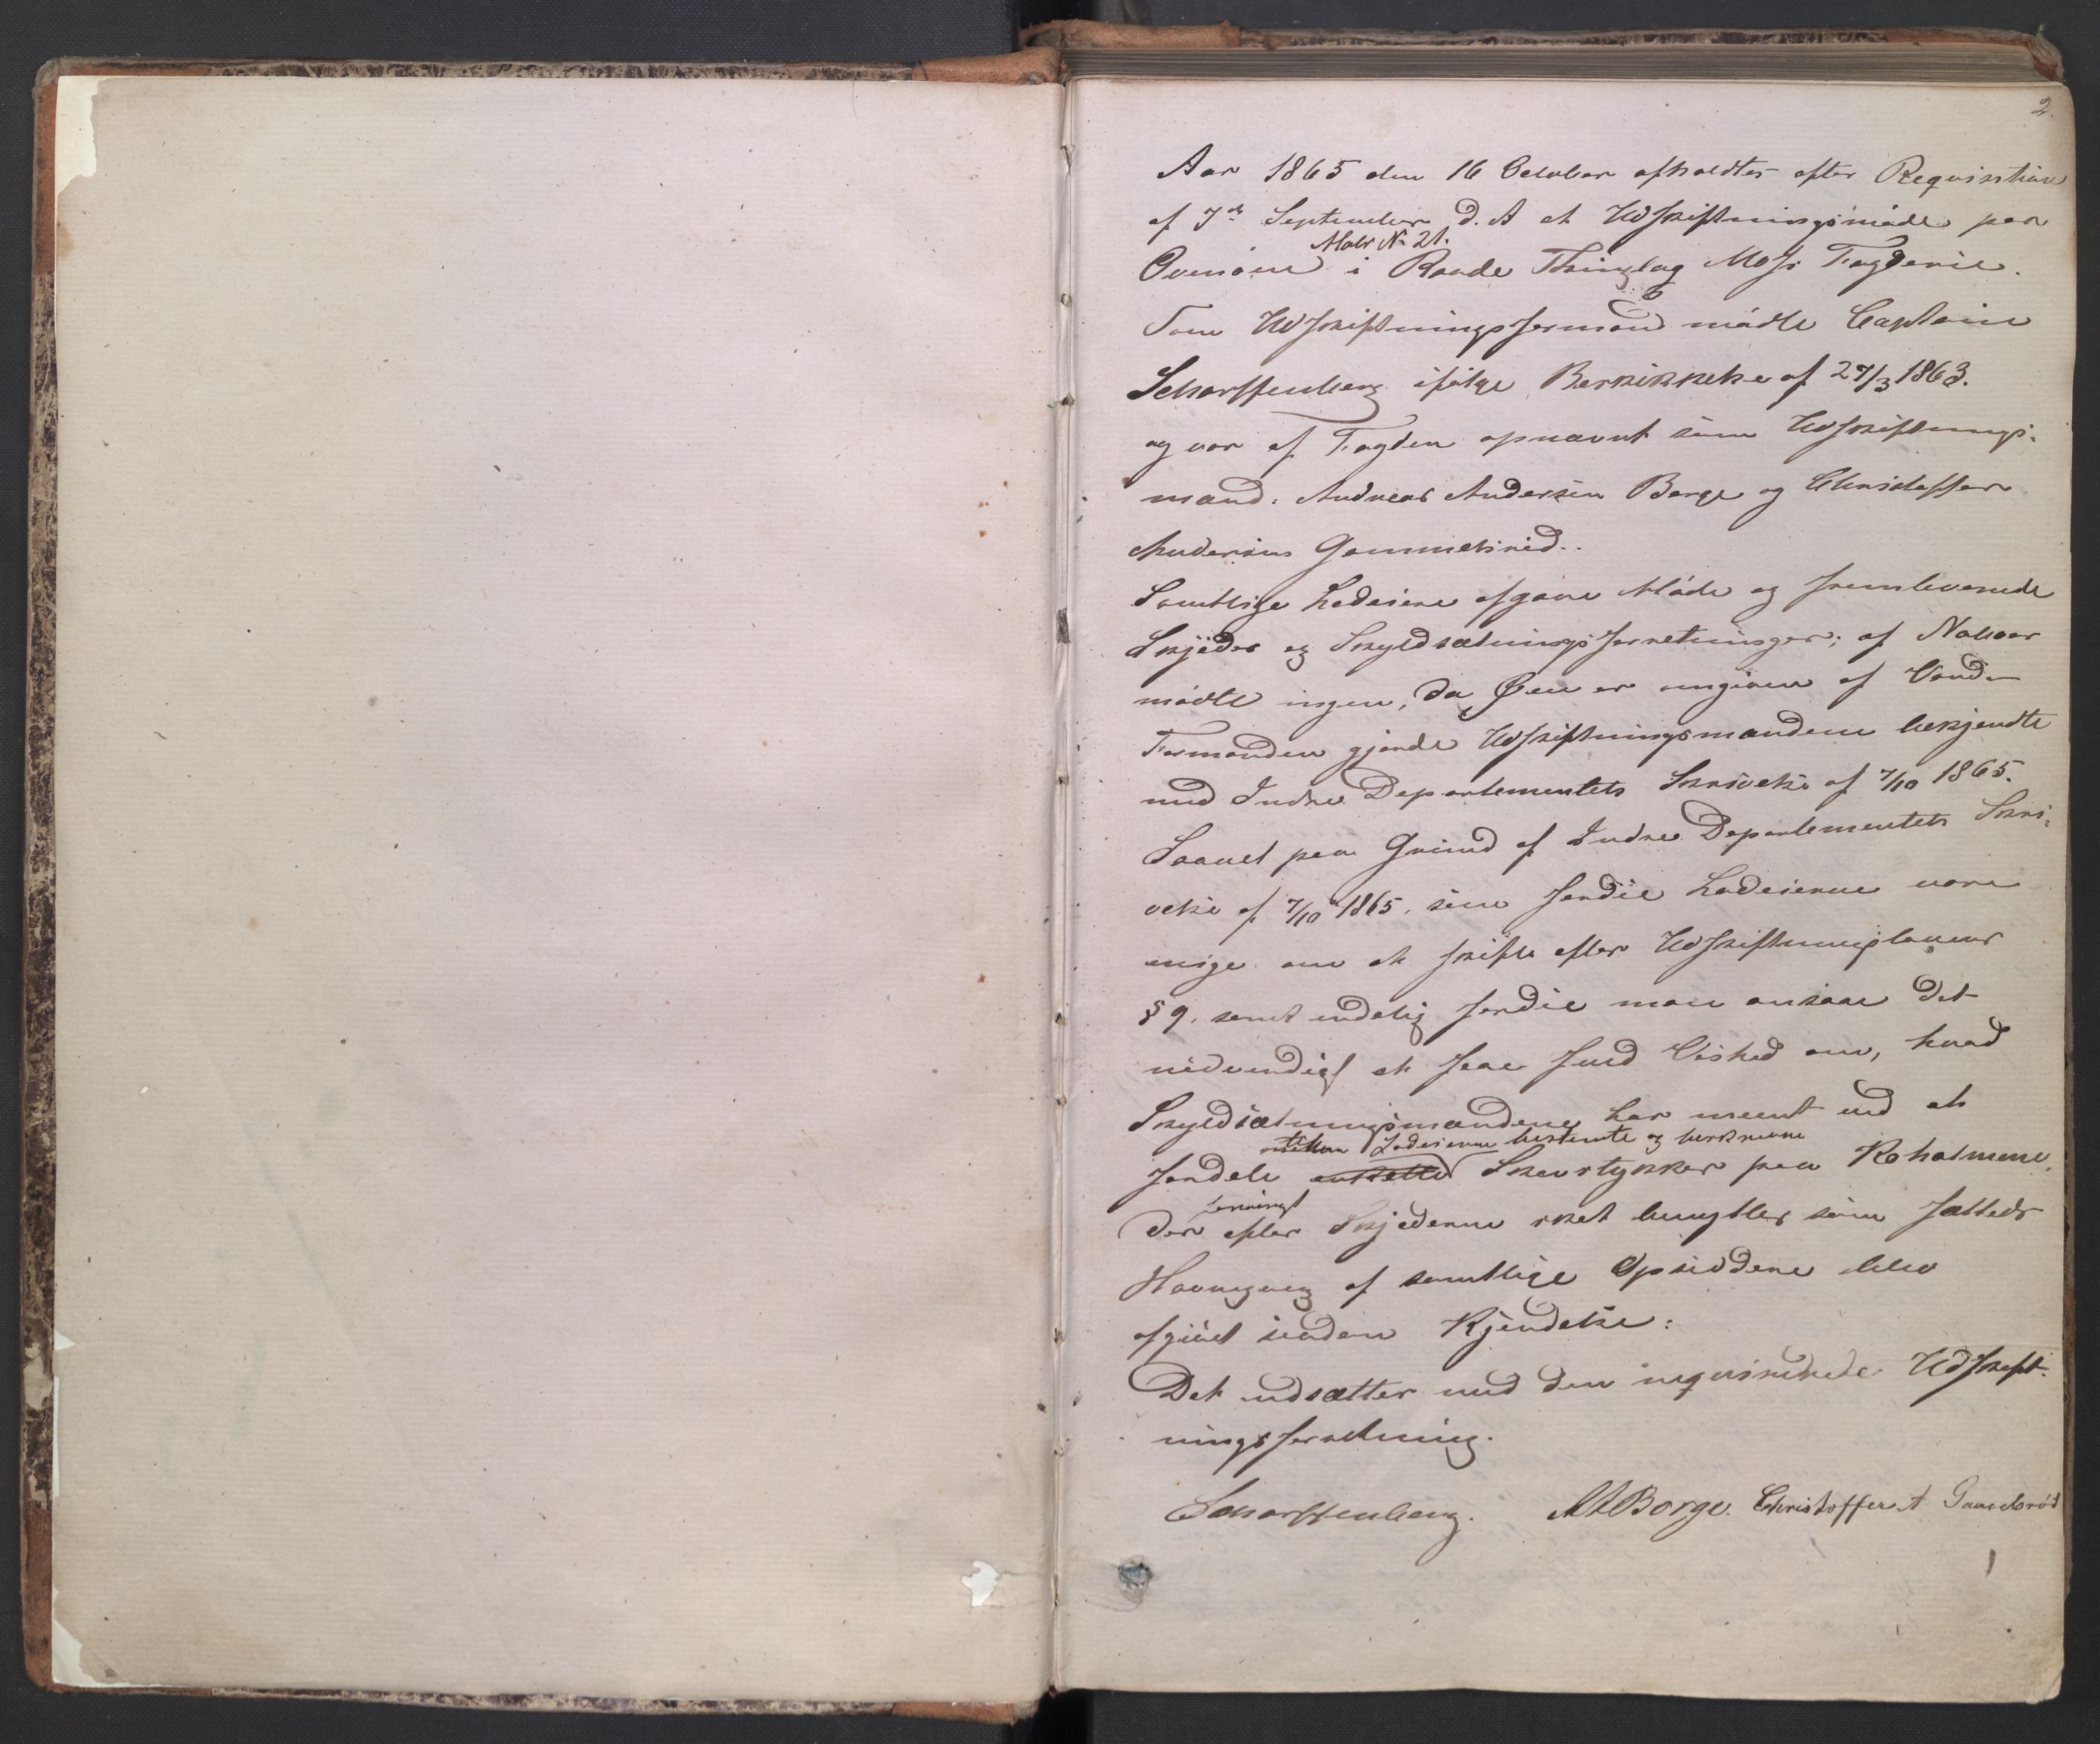 2.
Aar 1865 den 16 October afholdtes efter Requisition
af 7de September d. A et Udskiftningsmöde paa
Matr No 21.
Ovenöen i Raade Thinglag Moss Fogderie.
Som Udskiftningsformand mödte Captain
Scharffenberg ifölge Beskikkelse af 27/3 1863.
og var af Fogden opnævnt som Udskiftnings-
mænd: Andreas Andersen Borge og Christoffer
Andersen Gammelsröd.
Samtlige Lodeiere afgave Möde og fremleverede
Skjöder og Skyldsætningsforretninger; af Naboer
mödte ingen, da Øen er omgiven af Vand.
Formanden gjorde Udskiftningsmændene bekjendte
med Indre Departementets Skrivelse af 7/10 1865.
Saavel paa Grund af Indre Departementets Skri-
velse af 7/10 1865, som fordi Lodeierne vare
enige om at skifte efter Udskiftningslovens
§ 9. samt endelig fordi man ansaae det
nödvendigt at faae fuld Vished om, hvad
Skyldsætningsmændene har meent ved at
mellem Lodeierne bestemte og beskrevne
fordele enkelte Skovstykker paa Koholmene,
der efter Skjöderne skal benyttes som fælleds
Havnegang af samtlige Opsiddere blev
afgivet saadan Kjendelse:
Det udsættes med den requirerede Udskift-
ningsforretning.
Scharffenberg. AABorge. Christoffer A Gamelsröd